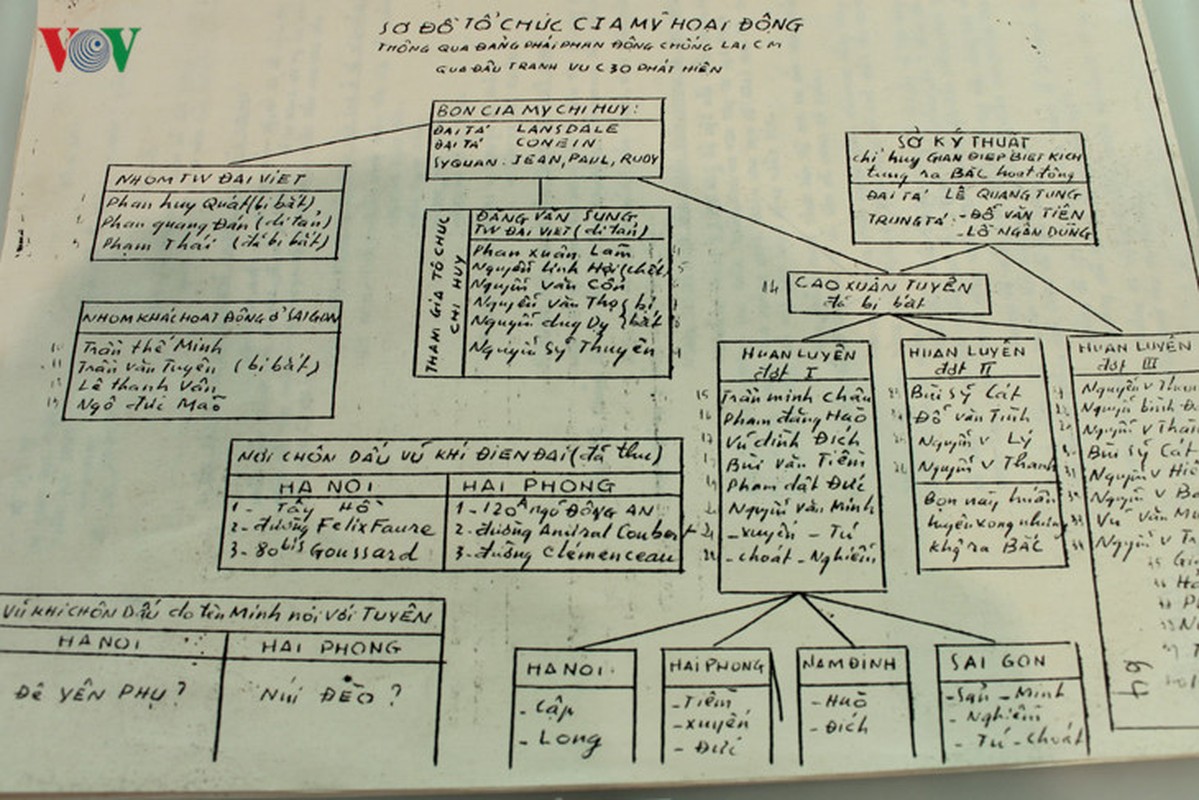 VOV
SƠ ĐỒ TỔ CHỨC CIA MỸ HOẠT ĐỘNG
THÔNG QUA ĐẢNG PHÁI PHẢN ĐỘNG CHỐNG LẠI CM
QUA ĐẤU TRANH VỤ C30 PHÁT HIỆN
BỌN CIA MỸ CHỈ HUY:
ĐẠI TÁ LANSDALE
ĐẠI TÁ CONEIN
SỸ QUAN. JEAN, PAUL, RUDY
SỞ KỸ THUẬT
chỉ huy GIÁN ĐIỆP BIỆT KÍCH
tung ra BẮC hoạt động
ĐẠI TÁ LÊ QUANG TUNG
TRUNG TÁ - ĐỖ VĂN TIÊN
- LÔ NGÂN DŨNG
NHÓM TW ĐẠI VIỆT
Phan huy Quát (bị bắt)
Phan quang Đán (di tản)
Phạm Thái (đã bị bắt)
THAM GIA TỔ CHỨC
CHỈ HUY
ĐẶNG VĂN SUNG
TW ĐẠI VIỆT (di tản)
Phan xuân Lam
Nguyễn linh Hội (chết)
Nguyễn văn Côn
Nguyễn văn Thọ } bị
Nguyễn duy Dy } bắt
Nguyễn Sỹ Thuyên
14 CAO XUÂN TUYÊN
đã bị bắt
NHÓM KHÁC HOẠT ĐỘNG Ở SAIGON
Trần thế Minh
Trần văn Tuyên (bị bắt)
Lê thanh Vân
Ngô đức Mão
HUẤN LUYỆN
đợt I
Trần minh Châu
Phạm đăng Hảo
Vũ đình Đích
Bùi văn Tiềm
Phạm dật Đức
Nguyễn văn Minh
- xuyến - Tứ
- choát - Nghiễm
HUẤN LUYỆN
đợt II
Bùi sỹ Cát
Đỗ văn Tình
Nguyễn v Lý
Nguyễn v Thanh
Bọn này huấn
luyện xong nhưng
khg ra BẮC
HUẤN LUYỆN
đợt III
Nguyễn v
Nguyễn bình
Nguyễn v
Bùi sỹ Cát
Nguyễn v
Nguyễn v
Vũ văn
Nguyễn v
NƠI CHÔN DẤU VŨ KHÍ ĐIỆN ĐÀI (đã thu)
HÀ NỘI
1 - Tây HỒ
2 - đường Felix Faure
3 - 80bis Goussard
HẢI PHÒNG
1 - 120A ngõ ĐÔNG AN
2 - đường Amiral Courbert
3 - đường Clémenceau
VŨ KHÍ CHÔN DẤU do tên Minh nói với TUYÊN
HÀ NỘI
Đê YÊN PHỤ?
HẢI PHÒNG
NÚI ĐÈO?
HÀ NỘI
- Cập
- Long
HẢI PHÒNG
- Tiềm
- xuyến
- Đức
NAM ĐỊNH
- Hảo
- Đích
SÀI GÒN
- Minh
- Nghiễm
- Tứ - choát
64